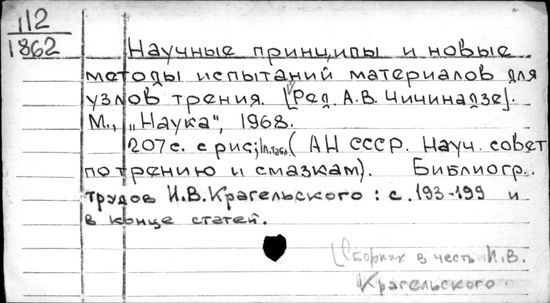 112
1862
Научные принципы и новые
методы испытаний материалов для
узлов трения. [Ред. А.В. Чичинадзе].
М., „Наука", 1968.
207с. с рис; (АН СССР. Науч. совет
по трению и смазкам). Библиогр.
трудов И.В. Крагельского: с. 193-199 и
в конце статей.
[Сборник в честь И.В.
Крагельского.